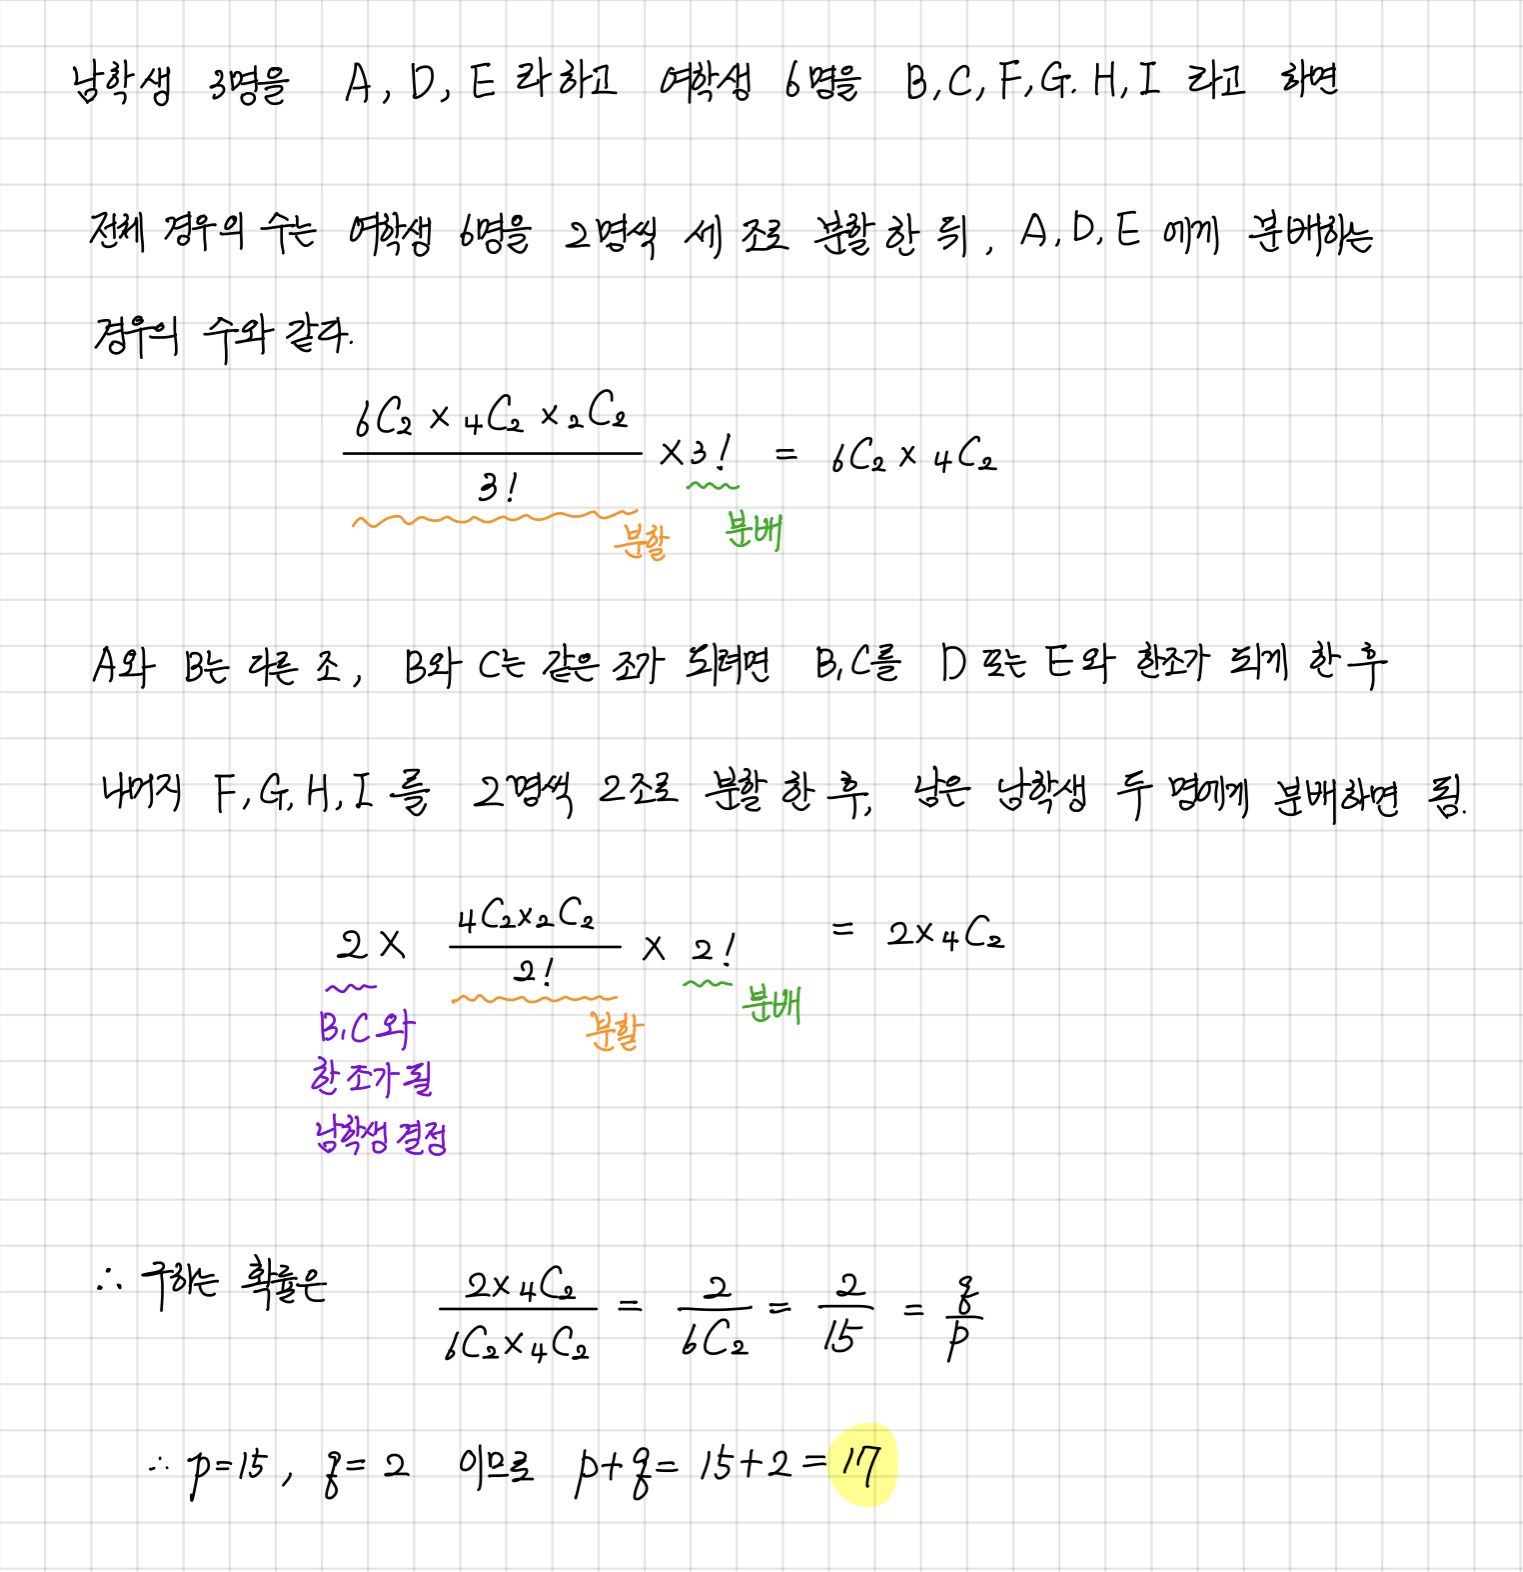 남학생 3명을 A, D, E 라하고 여학생 6명을 B, C, F, G. H, I 라고 하면
전체 경우의 수는 여학생 6명을 2명씩 세 조로 분할 한 뒤, A, D, E 에게 분배하는
경우의 수와 같다.
6C2 × 4C2 × 2C2 / 3! × 3! = 6C2 × 4C2
분할 분배
A와 B는 다른 조, B와 C는 같은 조가 되려면 B, C를 D 또는 E와 한조가 되게 한 후
나머지 F, G, H, I 를 2명씩 2조로 분할 한 후, 남은 남학생 두 명에게 분배하면 됨.
2 × 4C2 × 2C2 / 2! × 2! = 2 × 4C2
분할 분배
B, C와
한 조가 될
남학생 결정
∴ 구하는 확률은 2 × 4C2 / 6C2 × 4C2 = 2 / 6C2 = 2 / 15 = q / p
∴ p = 15, q = 2 이므로 p + q = 15 + 2 = 17